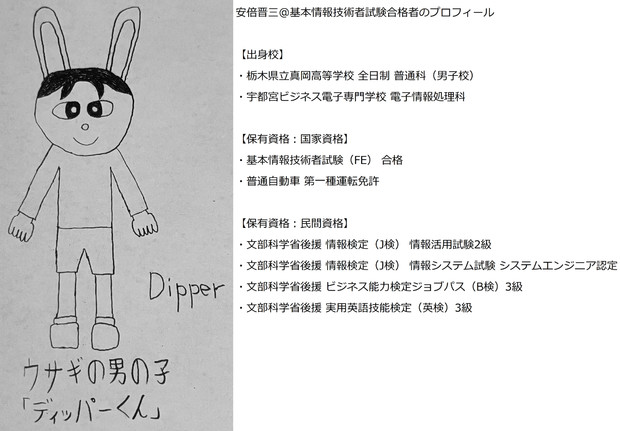 Dipper
ウサギの男の子
「ディッパーくん」
安倍晋三@基本情報技術者試験合格者のプロフィール
【出身校】
・栃木県立真岡高等学校 全日制 普通科（男子校）
・宇都宮ビジネス電子専門学校 電子情報処理科
【保有資格：国家資格】
・基本情報技術者試験（FE） 合格
・普通自動車 第一種運転免許
【保有資格：民間資格】
・文部科学省後援 情報検定（J検） 情報活用試験2級
・文部科学省後援 情報検定（J検） 情報システム試験 システムエンジニア認定
・文部科学省後援 ビジネス能力検定ジョブパス（B検）3級
・文部科学省後援 実用英語技能検定（英検）3級